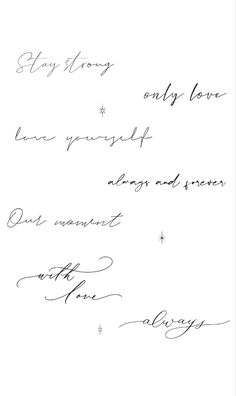 Stay strong
only love
love yourself
always and forever
Our moment
with
love
always